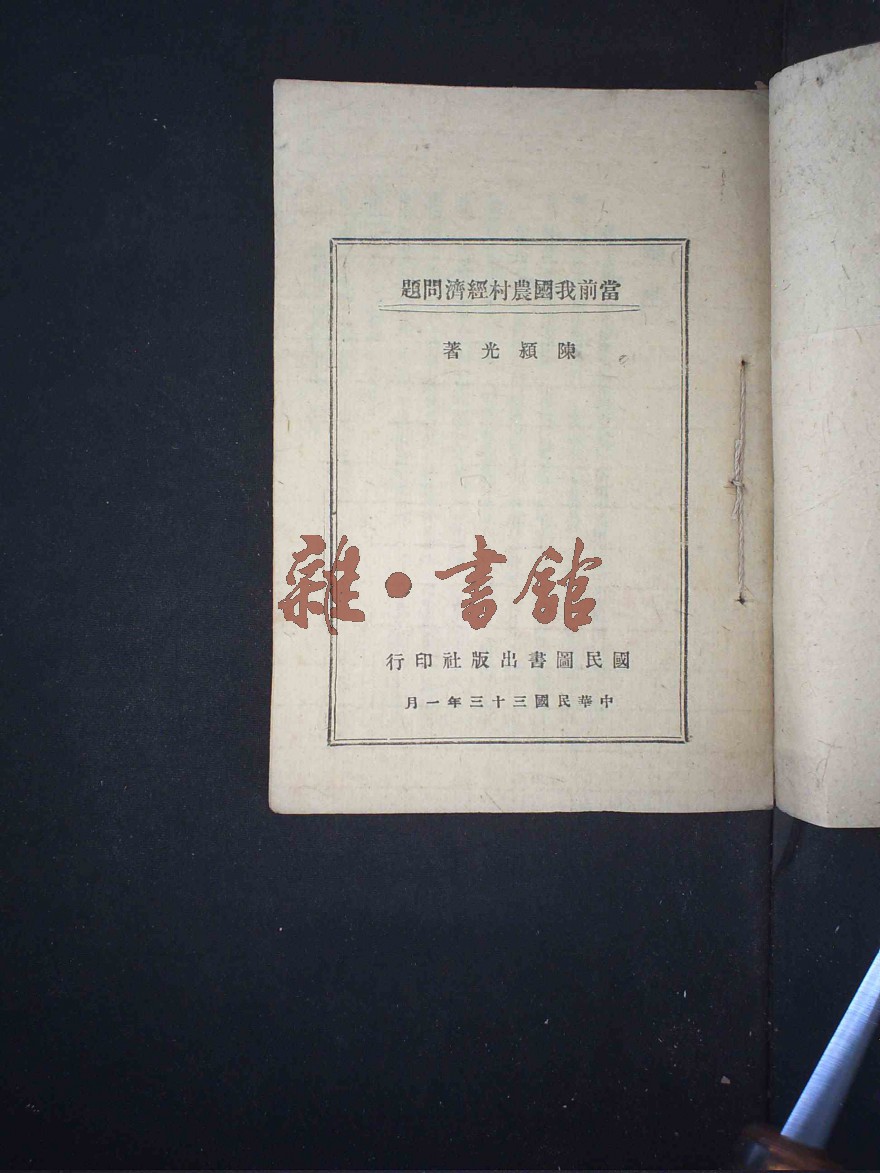 當前我國農村經濟問題
陳潁光著
雜·書館
國民圖書出版社印行
中華民國三十三年一月